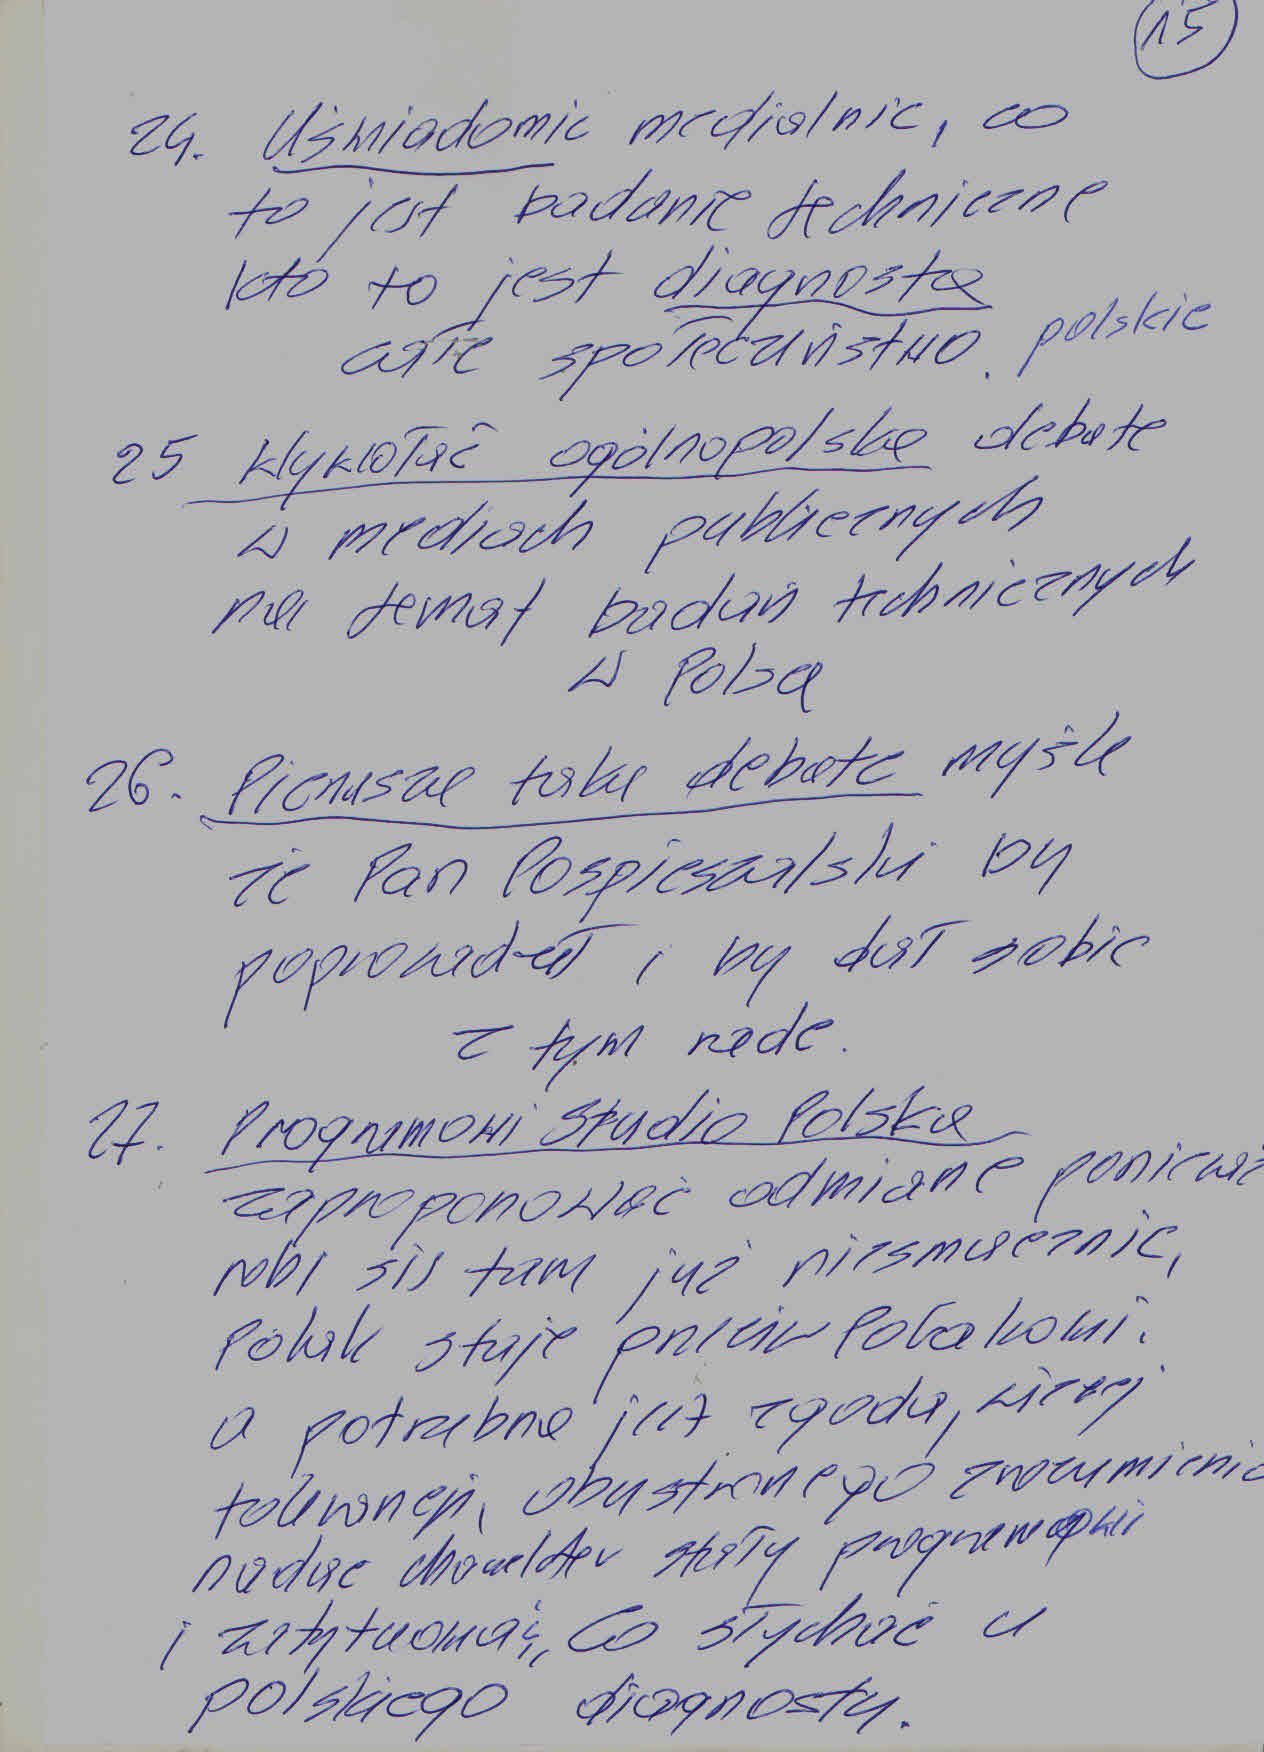 15
24. Uświadomic medialnie, co
to jest badanie techniczne
kto to jest diagnosta
całe społeczeństwo. polskie
25 Wywołać ogólnopolską debatę
w mediach publicznych
na temat badań technicznych
w Polsce
26. Pierwszą taką debatę myślę
że Pan Pospieszalski by
poprowadził i by dał sobie
z tym radę.
27. Programowi Studio Polska
zaproponować odmianę ponieważ
robi się tam już niesmacznie,
Polak staje przeciw Polakowi.
a potrzebna jest zgoda, więcej
tolerancji, obustronnego zrozumienia
nadać charakter stały programowi
i zatytuować „Co słychać u
polskiego diagnosty.